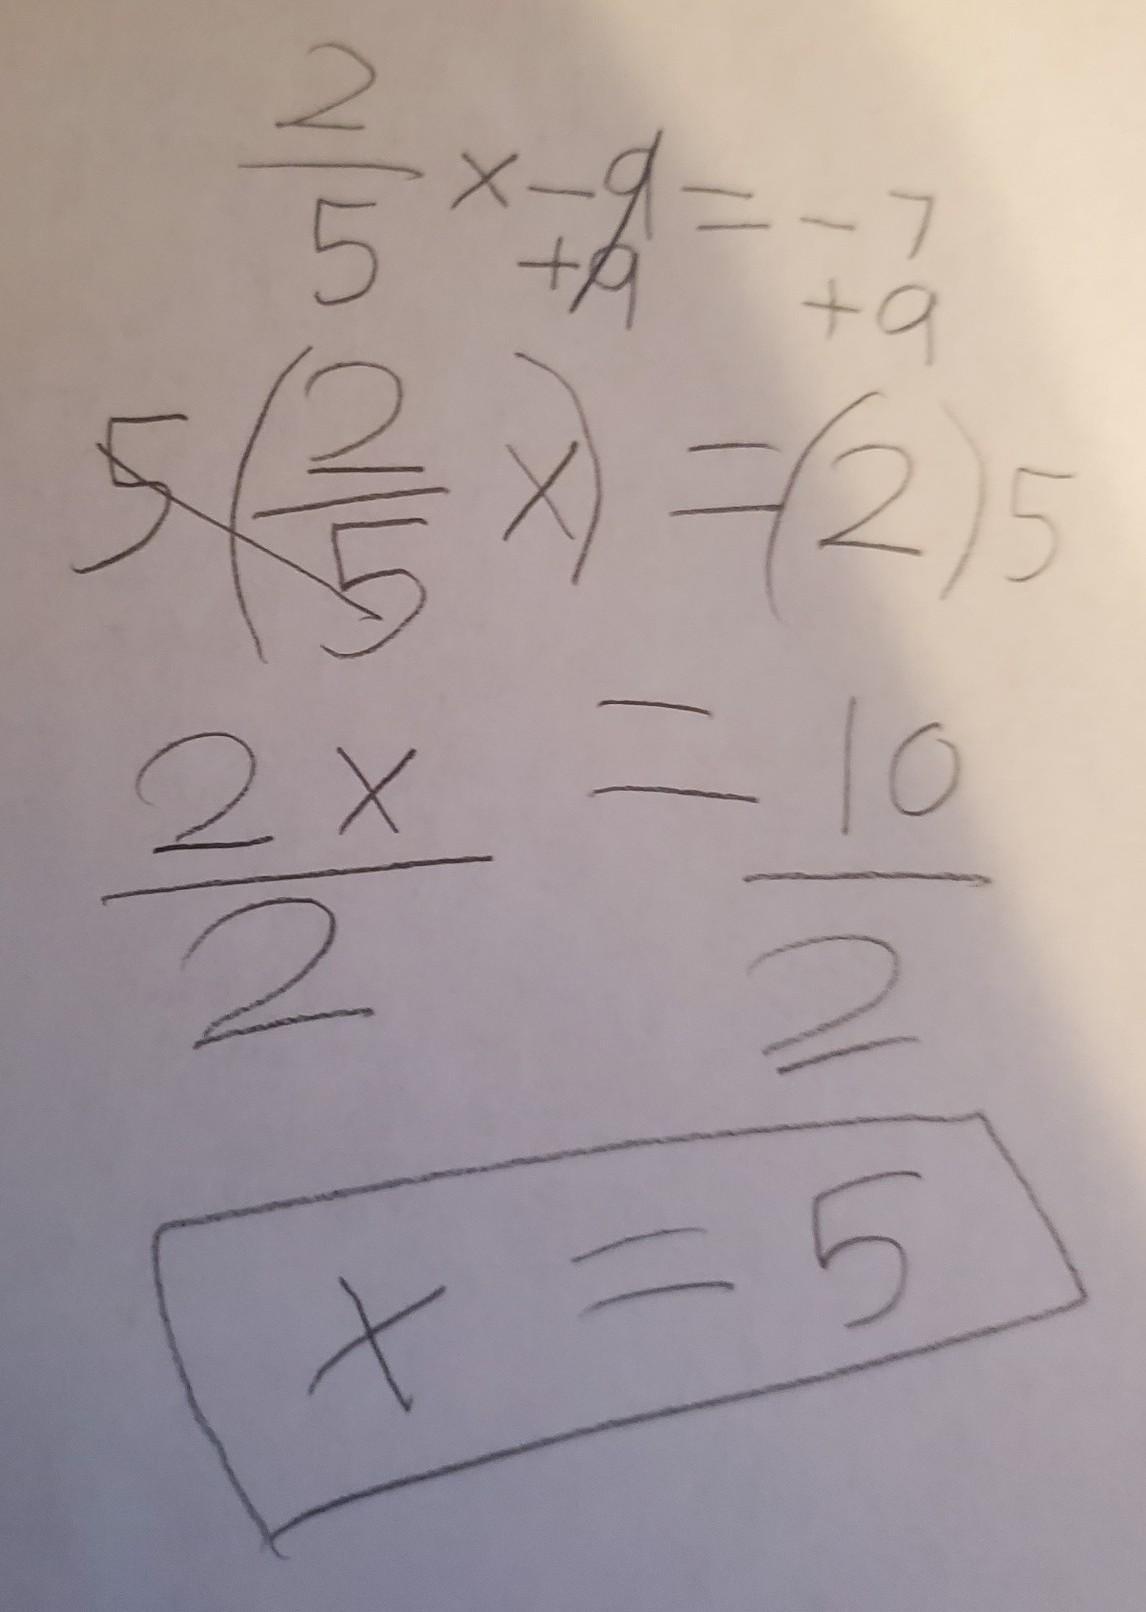 2/5 x - 9 = - 7
+9 +9
5(2/5 x) = (2)5
2x/2 = 10/2
x = 5